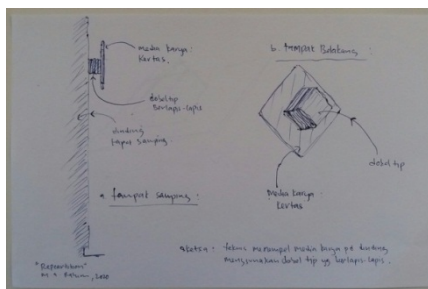 media karya :
kertas.
dobel tip
berlapis-lapis
dinding
tampak samping
a. tampak samping :
b. tampak belakang :
dobel tip
media karya :
kertas
sketsa : teknis menempel media karya pd dinding
menggunakan dobel tip yg berlapis-lapis.